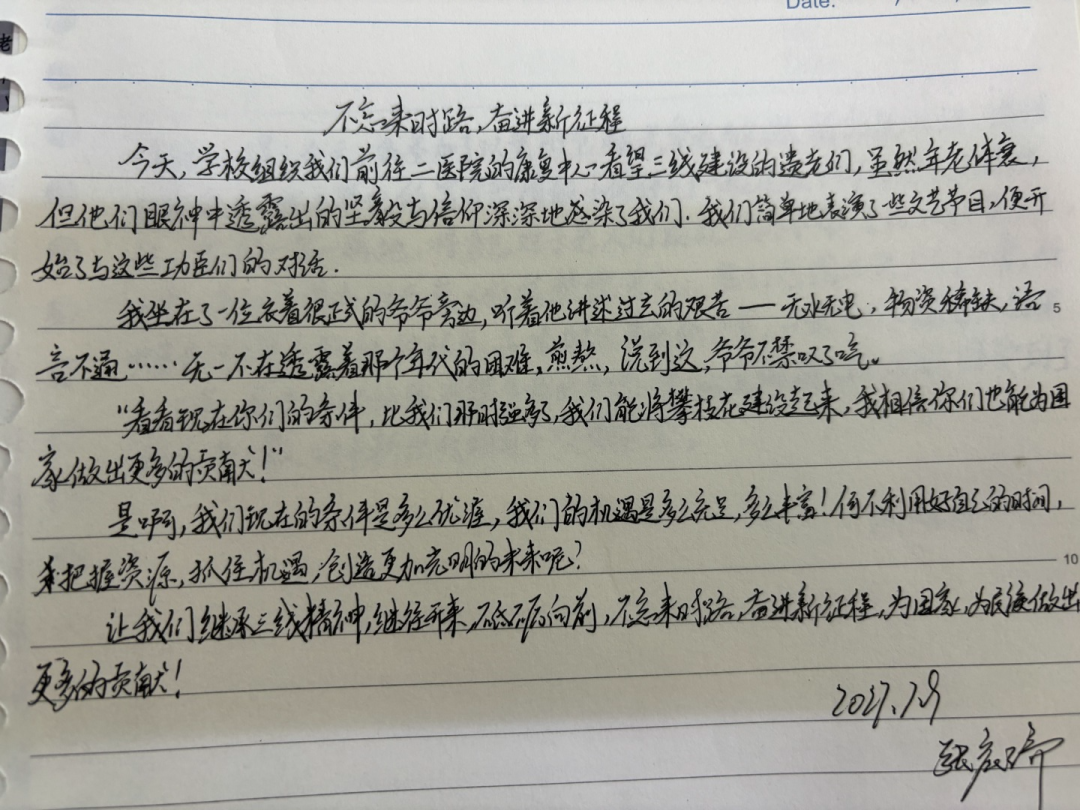 Date:
不忘来时路,奋进新征程
今天,学校组织我们前往二医院的康复中心看望三线建设的遗老们,虽然年老体衰,
但他们眼神中透露出的坚毅与信仰深深地感染了我们.我们简单地表演了些文艺节目,便开
始了与这些功臣们的对话.
我坐在了一位衣着很正式的爷爷旁边,听着他讲述过去的艰苦——无水无电,物资稀缺,语
言不通……无一不在透露着那个年代的困难,煎熬,说到这,爷爷不禁叹了口气。
“看看现在你们的条件,比我们那时强多了,我们能将攀枝花建设起来,我相信你们也能为国
家做出更多的贡献!”
是啊,我们现在的条件是多么优渥,我们的机遇是多么充足,多么丰富!何不利用好自己的时间,
把握资源,抓住机遇,创造更加光明的未来呢?
让我们继承三线精神,继往开来,砥砺向前,不忘来时路,奋进新征程,为国家,为民族做出
更多的贡献!
5
10